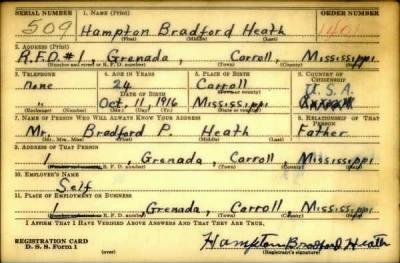 SERIAL NUMBER 1. NAME (Print) ORDER NUMBER
509 Hampton Bradford Heath
(First) (Middle) (Last)
2. ADDRESS (Print)
R.F.D.#1, Grenada, Carroll, Mississippi
(Number and street or R. F. D. number) (Town) (County) (State)
3. TELEPHONE 4. AGE IN YEARS 5. PLACE OF BIRTH 6. COUNTRY OF CITIZENSHIP
None 24 Carroll U.S.A.
DATE OF BIRTH (Town or county)
" Oct. 11, 1916 Mississippi
(Exchange) (Number) (Mo.) (Day) (Yr.) (State or country)
7. NAME OF PERSON WHO WILL ALWAYS KNOW YOUR ADDRESS 8. RELATIONSHIP OF THAT PERSON
Mr. Bradford P. Heath Father
(Mr., Mrs., Miss) (First) (Middle) (Last)
9. ADDRESS OF THAT PERSON
1, Grenada, Carroll Mississippi
(Number and street or R. F. D. number) (Town) (County) (State)
10. EMPLOYER'S NAME
Self
11. PLACE OF EMPLOYMENT OR BUSINESS
1 Grenada, Carroll, Mississippi
(Number and street or R. F. D. number) (Town) (County) (State)
I AFFIRM THAT I HAVE VERIFIED ABOVE ANSWERS AND THAT THEY ARE TRUE.
REGISTRATION CARD
D. S. S. Form 1 (over) Hampton Bradford Heath
(Registrant's signature)